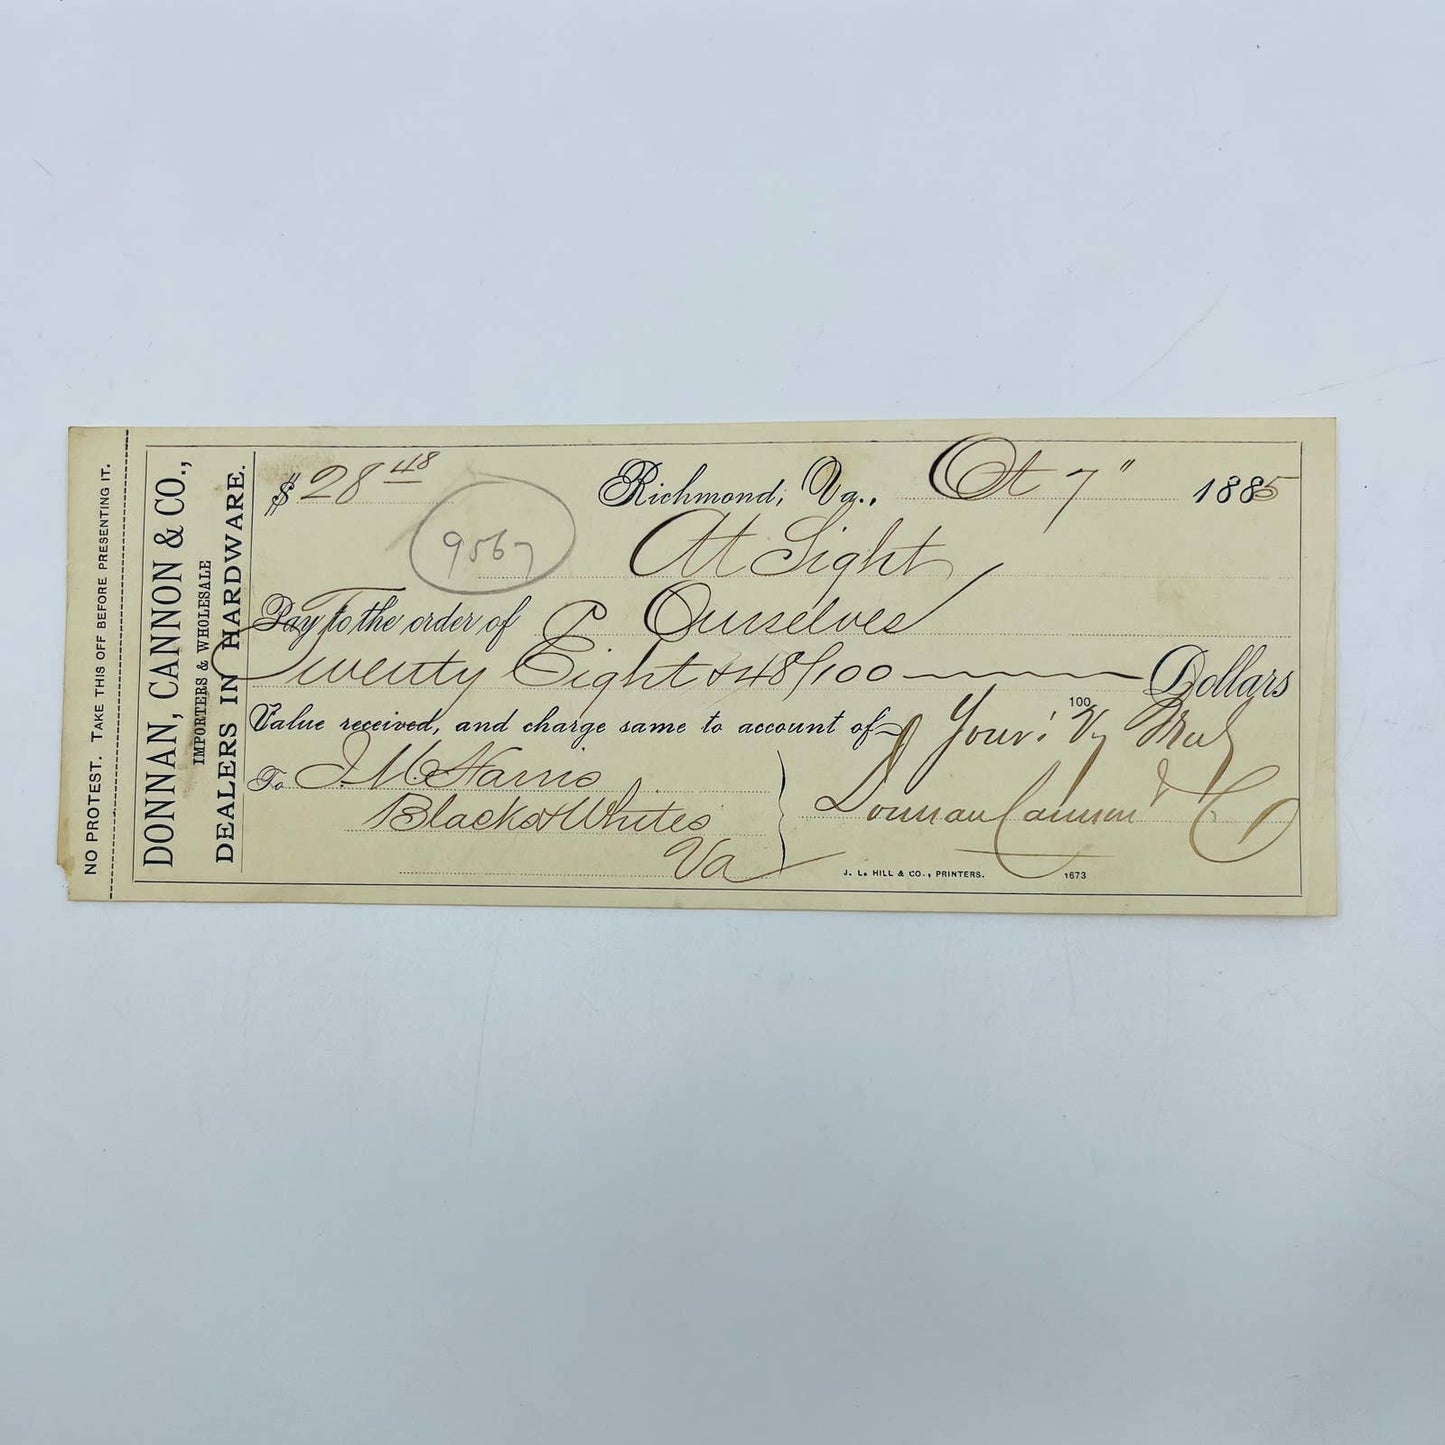 NO PROTEST. TAKE THIS OFF BEFORE PRESENTING IT.
DONNAN, CANNON & CO.,
IMPORTERS & WHOLESALE
DEALERS IN HARDWARE.
$ 28 48 Richmond, Va., Oct 7" 1885
9567
At Sight
Pay to the order of Ourselves
Twenty Eight & 48/100 Dollars
100
Value received, and charge same to account of Yours Truly
To J. M. Harris
Blacks & Whites
Va
Donnan Cannon & Co
J. L. HILL & CO., PRINTERS. 1673